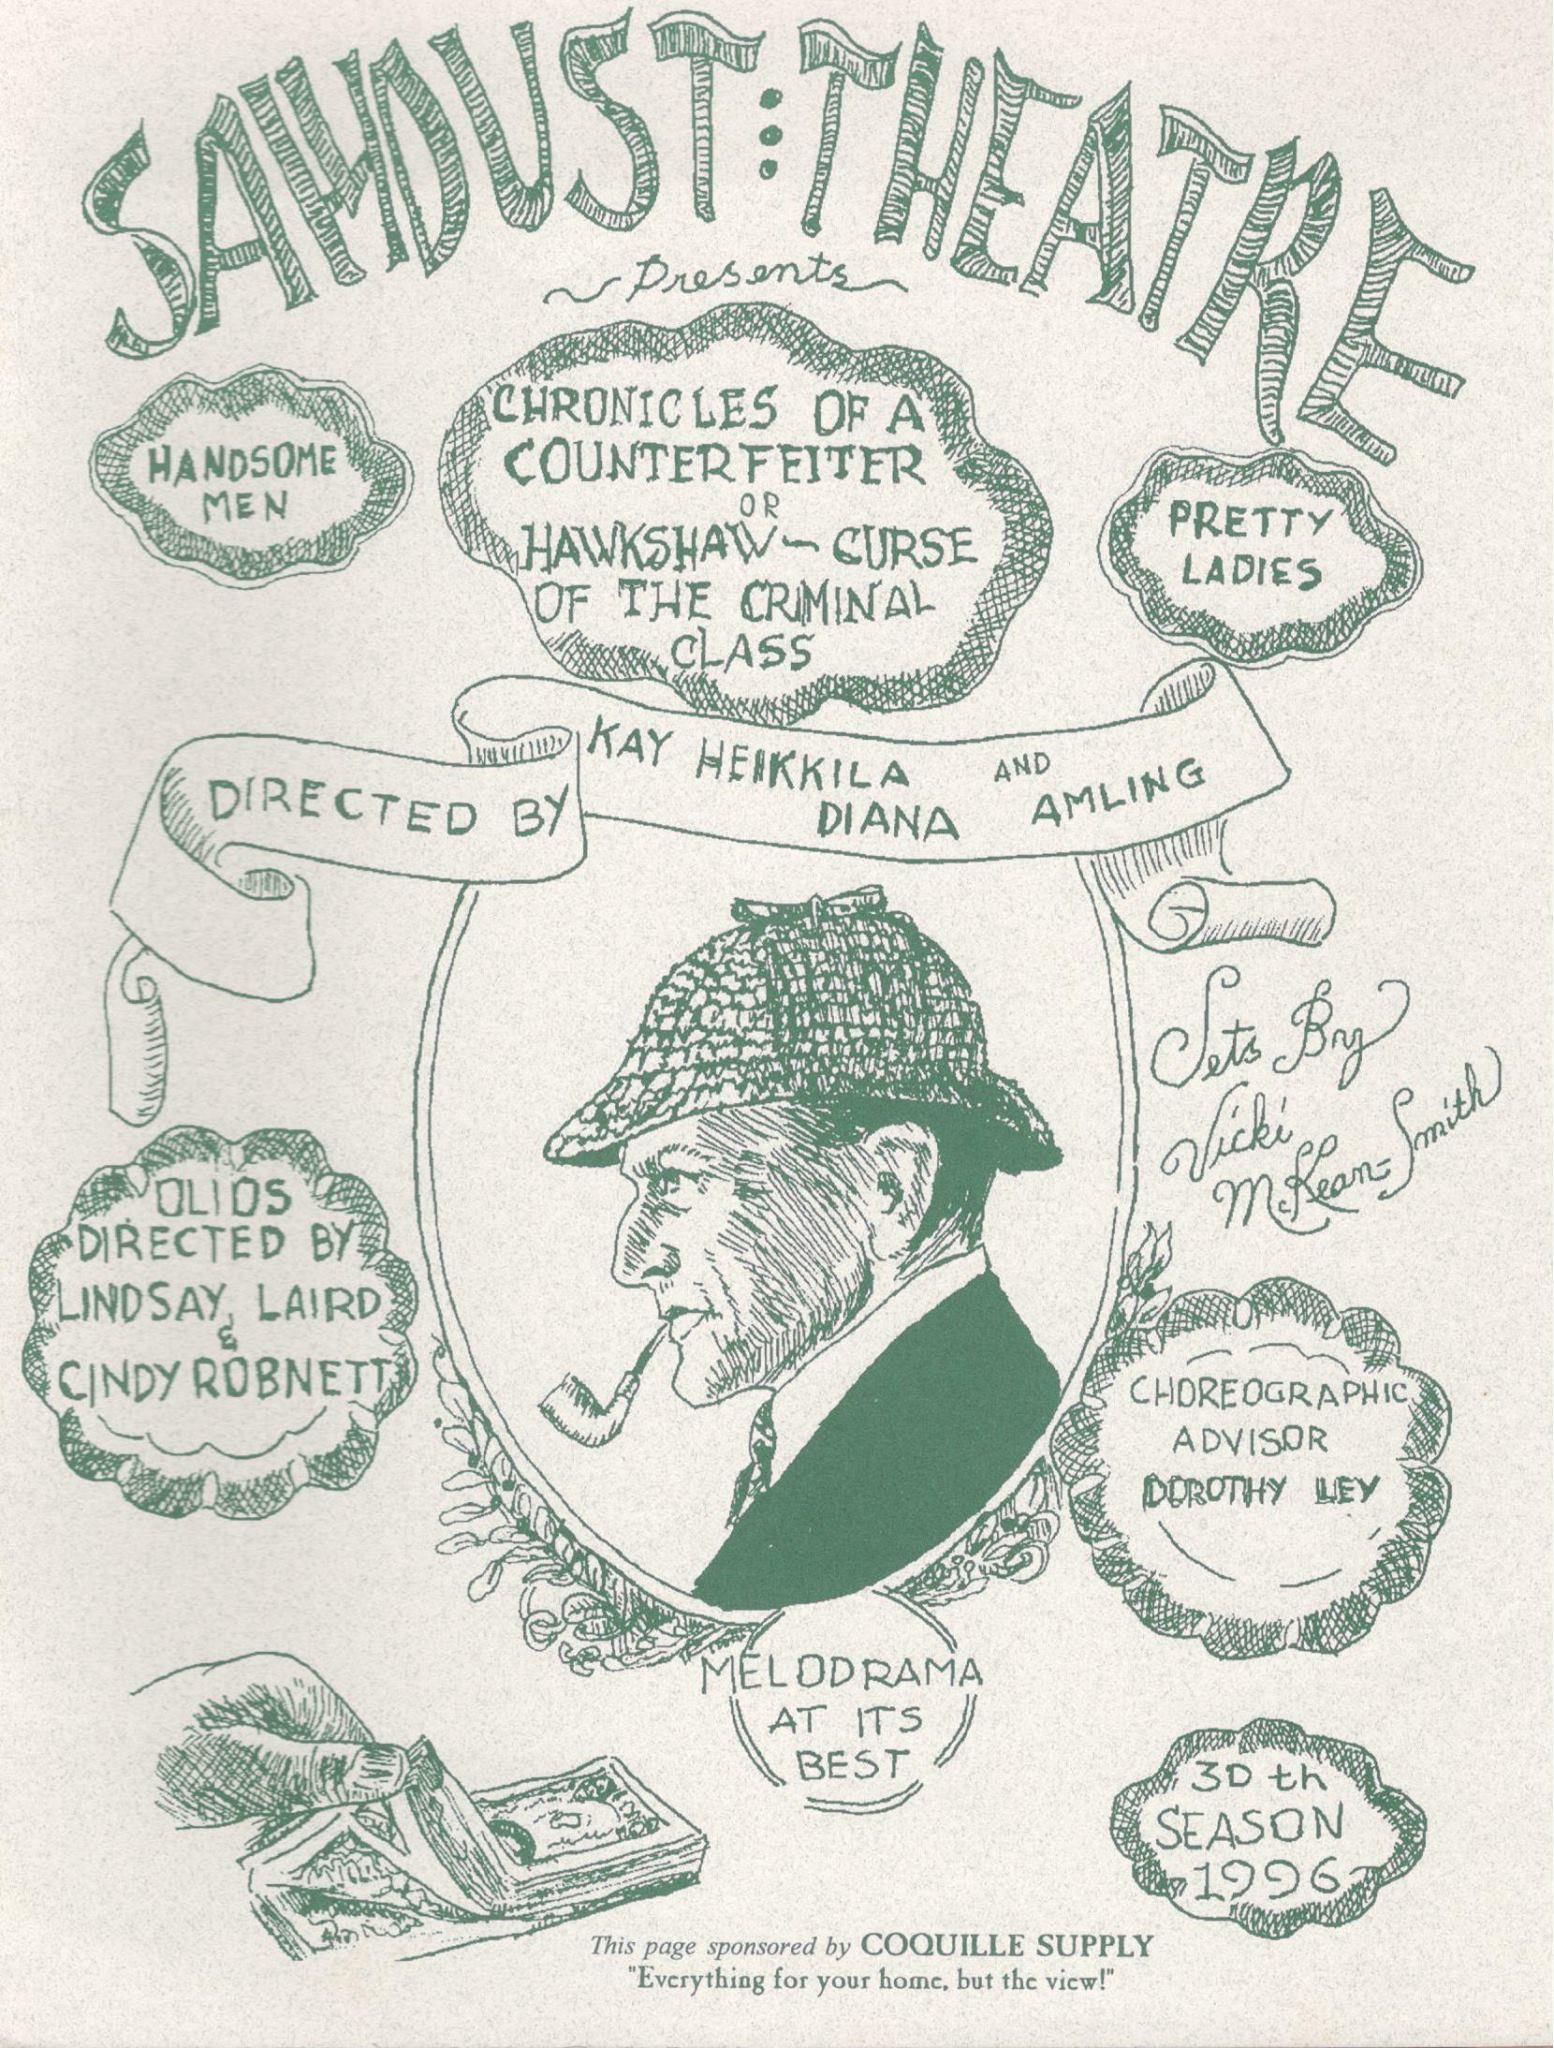 SAWDUST THEATRE
Presents
HANDSOME
MEN
CHRONICLES OF A
COUNTERFEITER
OR
HAWKSHAW - CURSE
OF THE CRIMINAL
CLASS
PRETTY
LADIES
DIRECTED BY
KAY HEIKKILA AND
DIANA AMLING
Sets By
Vicki
McKean-Smith
OLIOS
DIRECTED BY
LINDSAY LAIRD
&
CINDY ROBNETT
CHOREOGRAPHIC
ADVISOR
DOROTHY
MELODRAMA
AT ITS
BEST
30th
SEASON
1996
This page sponsored by COQUILLE SUPPLY
"Everything for your home, but the view!"